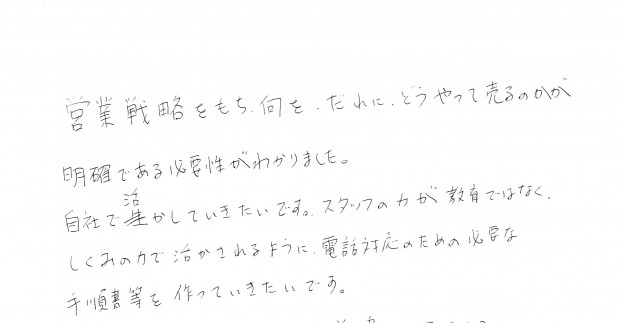 営業戦略をもち、何を、だれに、どうやって売るのかが
明確である必要性がわかりました。
自社で活かしていきたいです。スタッフの力が教育ではなく、
しくみの力で活かされるように、電話対応のための必要な
手順書等を作っていきたいです。